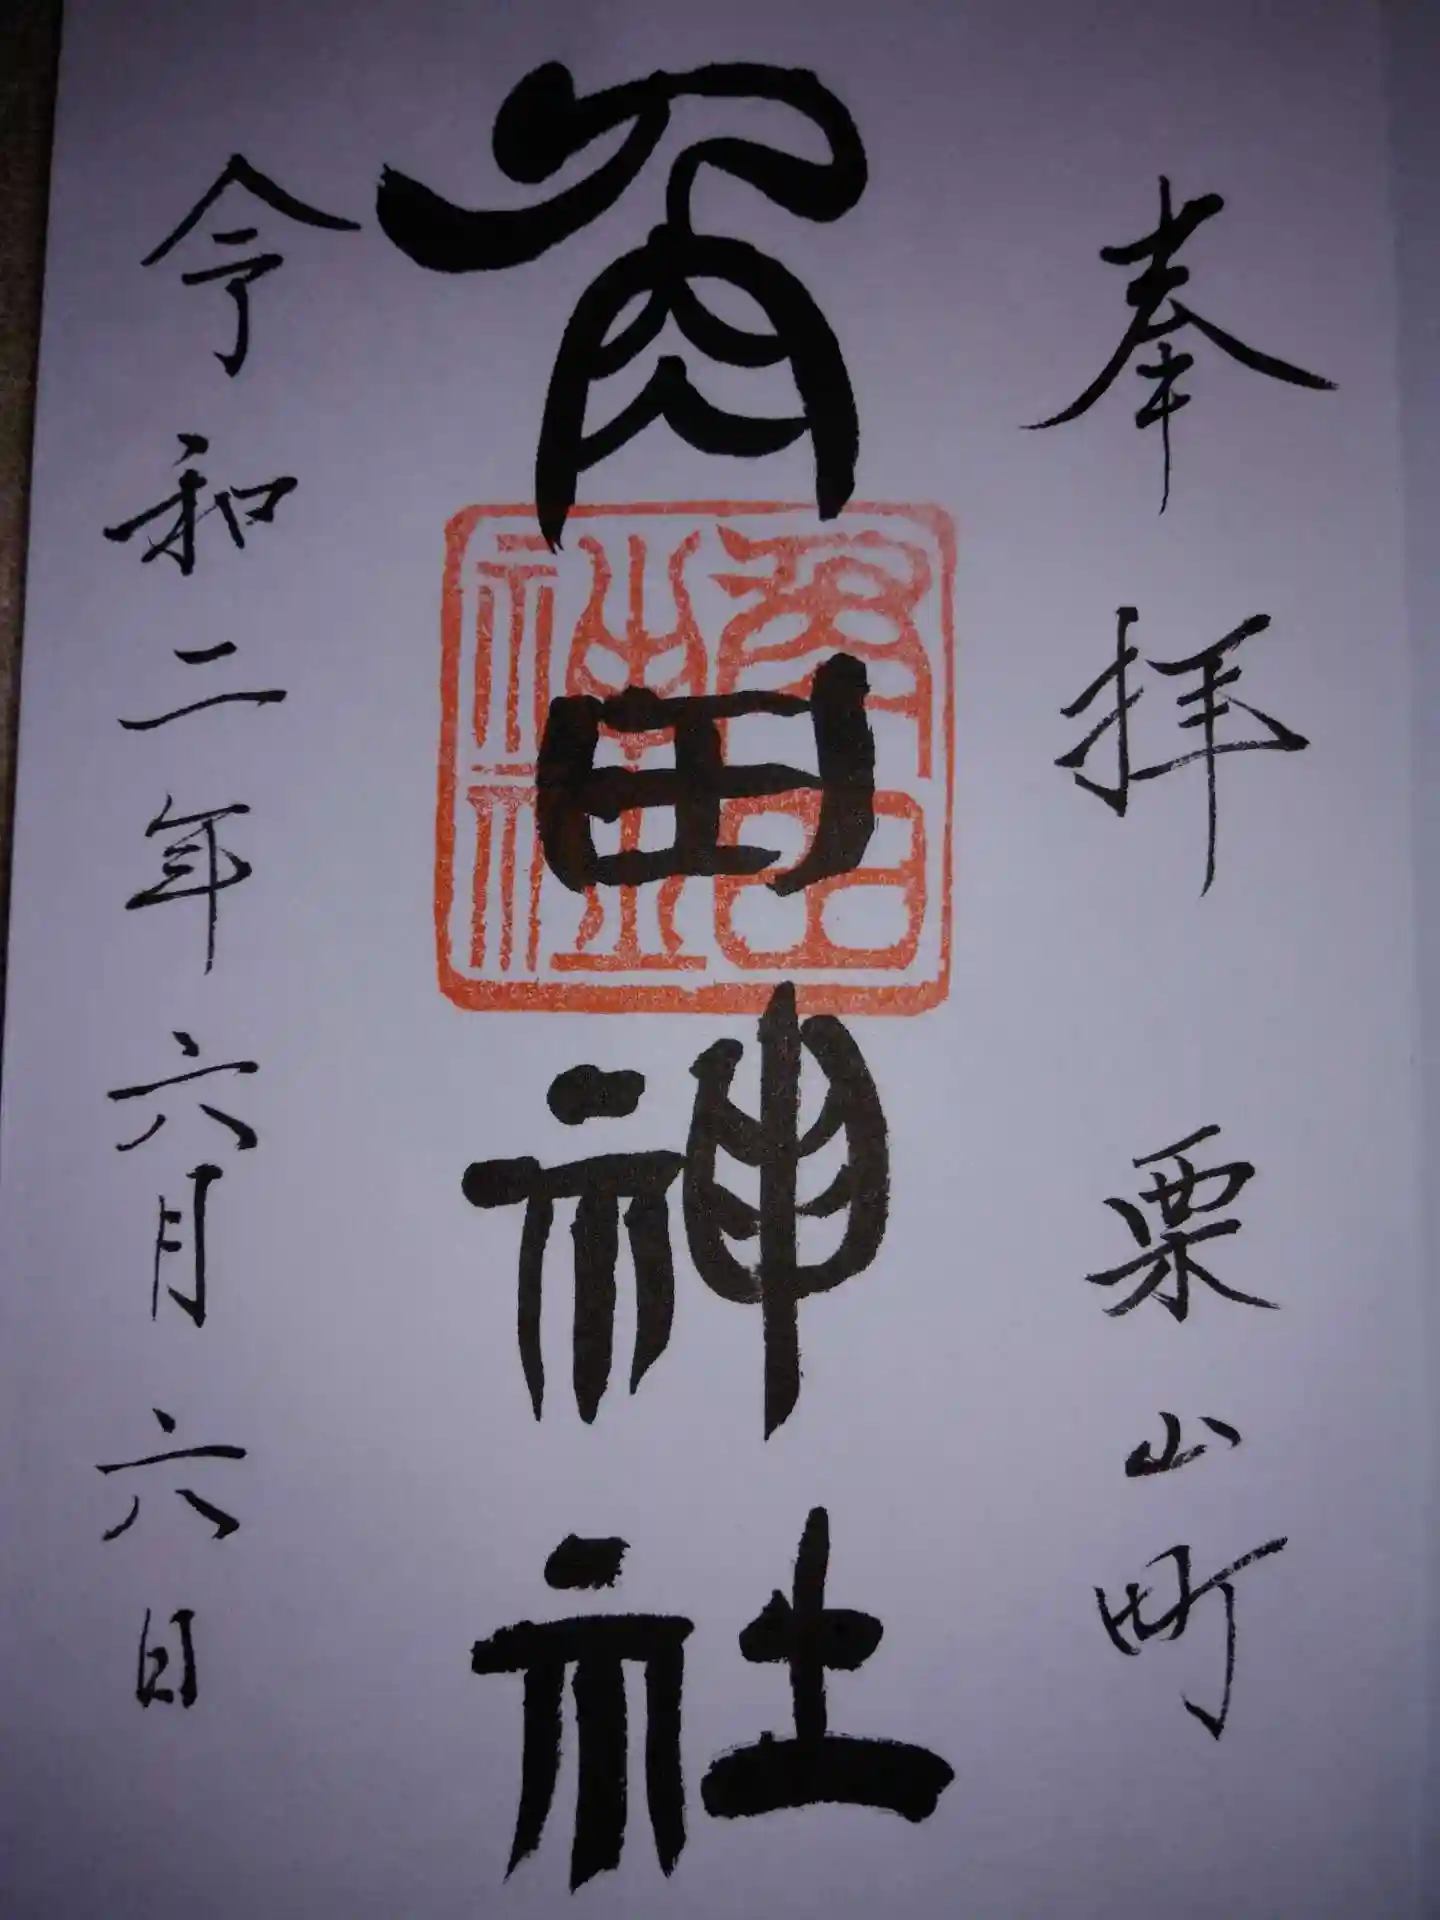 奉拝 栗山町
角田神社
角田
神社
令和二年六月六日